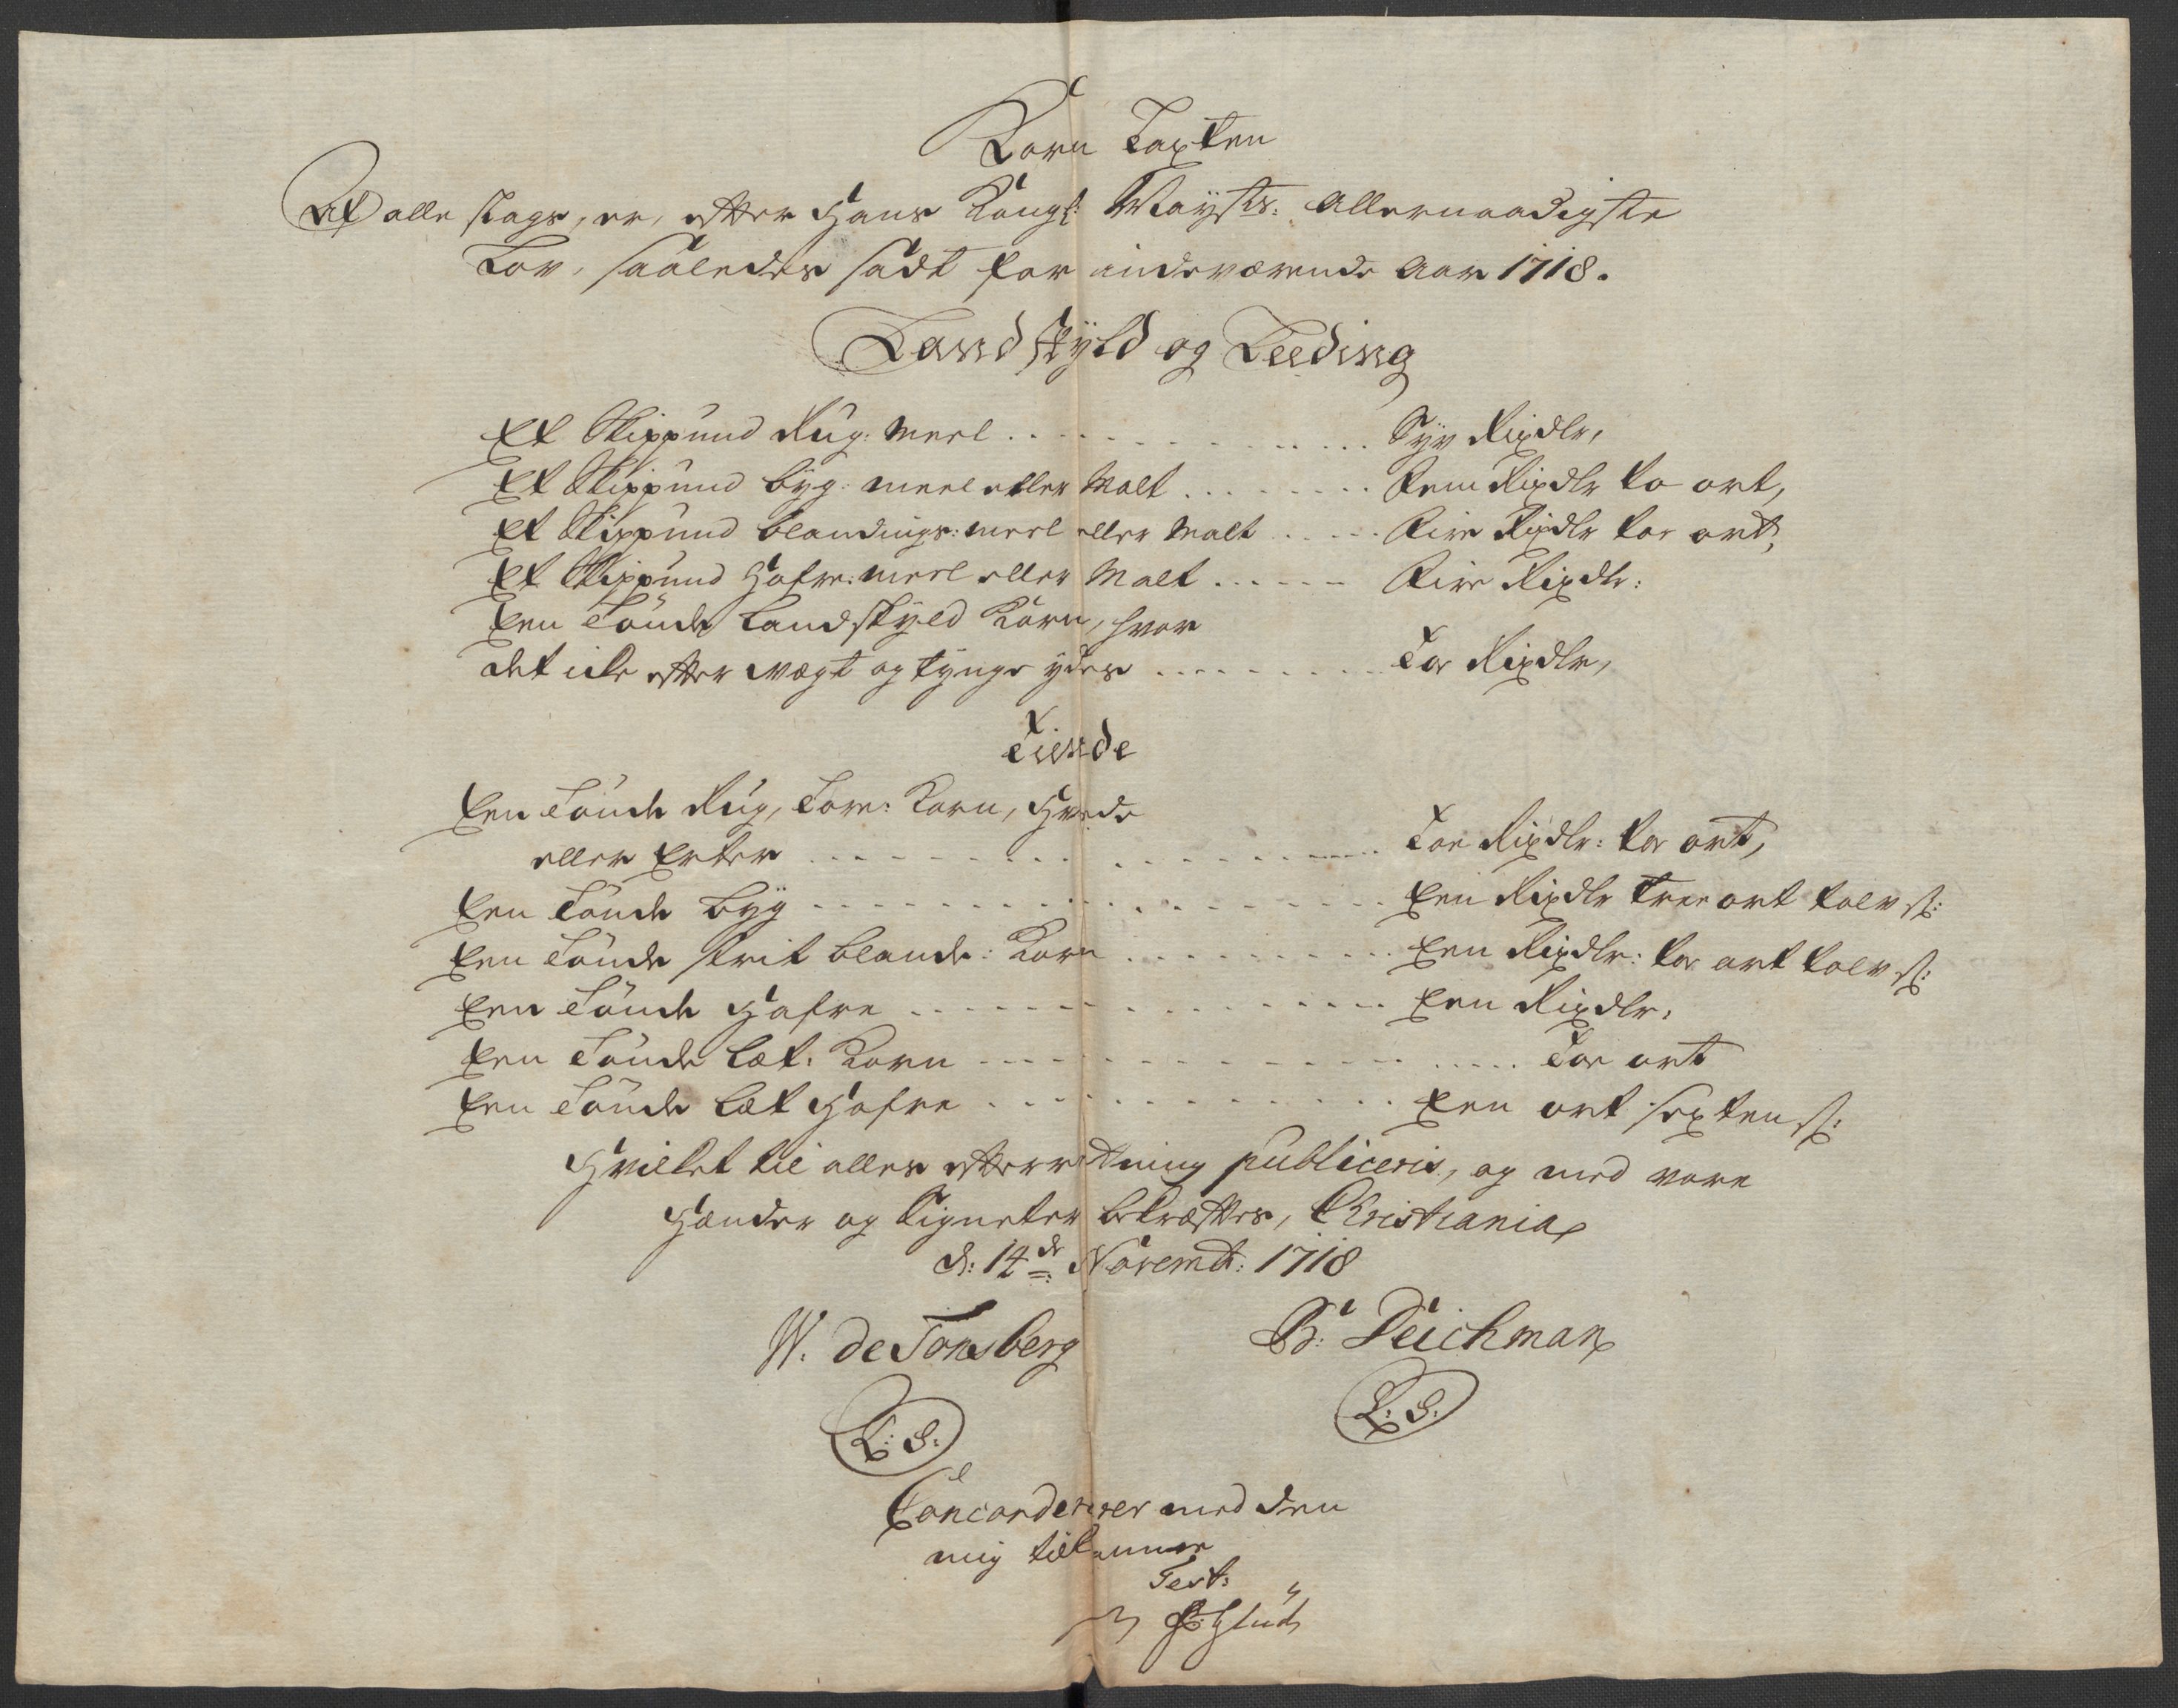 Korn Taxten
Af alle slags, er, efter Hans Kongl: Maysts: Allernaadigste
Lov, saaledes sadt for indeværende Aar 1718.
Landskyld og Leeding
Et Skippund Rug: Meel . . . . . . . . . . . Syv Rixdlr,
Et Skippund byg: meel eller Malt . . . . . . . . Fem Rixdlr to ort,
Et Skippund blandings: meel eller Malt . . . . . Fire Rixdlr toe ort,
Et Skippund Hafre: meel eller Malt . . . . . . Fire Rixdlr:
Een Tønde Landskyld Korn, hvor
det icke efter vegt og tynge ydes . . . . . . . . . Toe Rixdlr,
Tiende
Een Tønde Rug, Tore: Korn, Hvede
eller Erter . . . . . . . . . . . . . . . Toe Rixdlr: toe ort,
Een Tønde byg . . . . . . . . . . . . . . . Een Rixdlr tree ort tolv s:
Een Tønde skrit blande: Korn . . . . . . . . . . Een Rixdlr: toe ort tolv s:
Een Tønde Hafre . . . . . . . . . . . . . . Een Rixdlr:
Een Tønde læt: Korn . . . . . . . . . . . . . Toe ort
Een Tønde læt Hafre . . . . . . . . . . . . . Een ort sexten s:
Hvilket til alles efterretning publiceris, og med vore
Hænder og Signeter bekræftes, Christiania
d: 14de: Novembr: 1718
W. de Tonsberg B: Deichman
L: S: L: S:
Concorderer med den
mig tilkomne
Test: